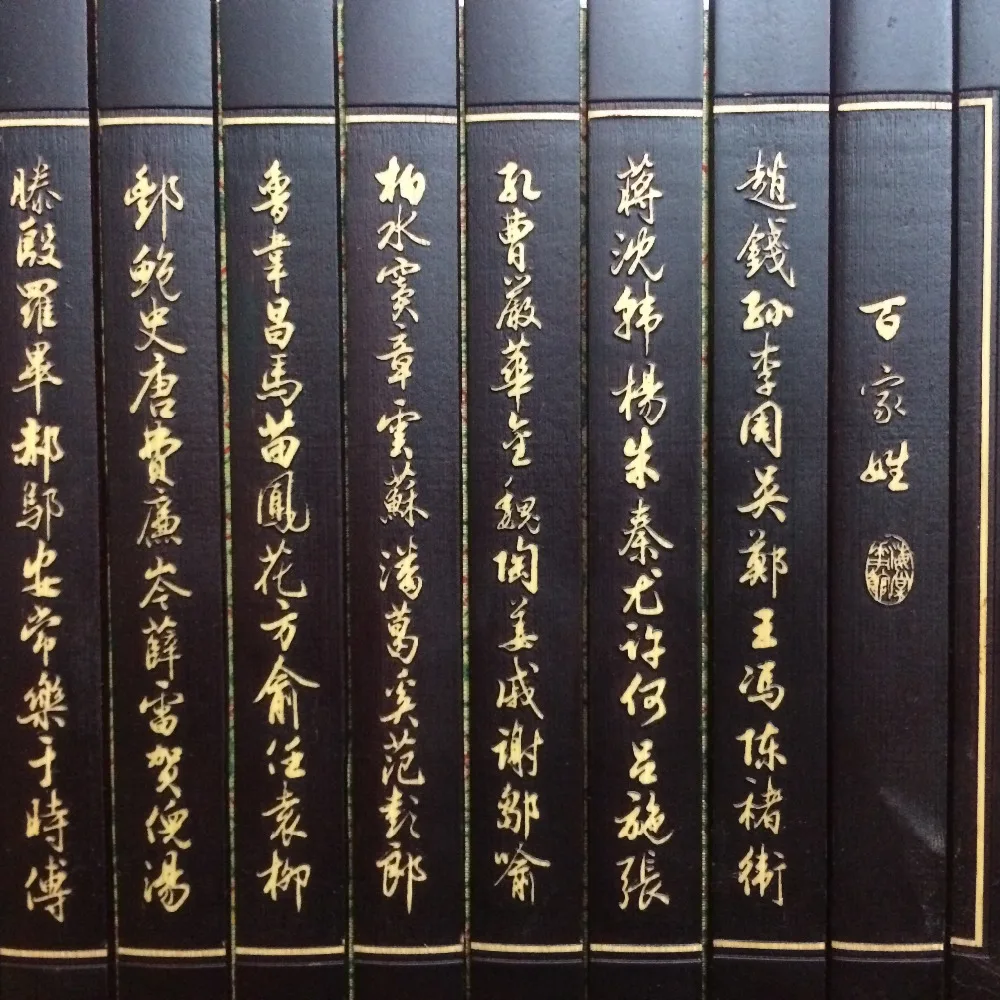 百家姓
趙錢孫李周吳鄭王馮陳褚衛
蔣沈韓楊朱秦尤許何呂施張
孔曹嚴華金魏陶姜戚謝鄒喻
柏水竇章雲蘇潘葛奚范彭郎
魯韋昌馬苗鳳花方俞任袁柳
酆鮑史唐費廉岑薛雷賀倪湯
滕殷羅畢郝鄔安常樂于時傅